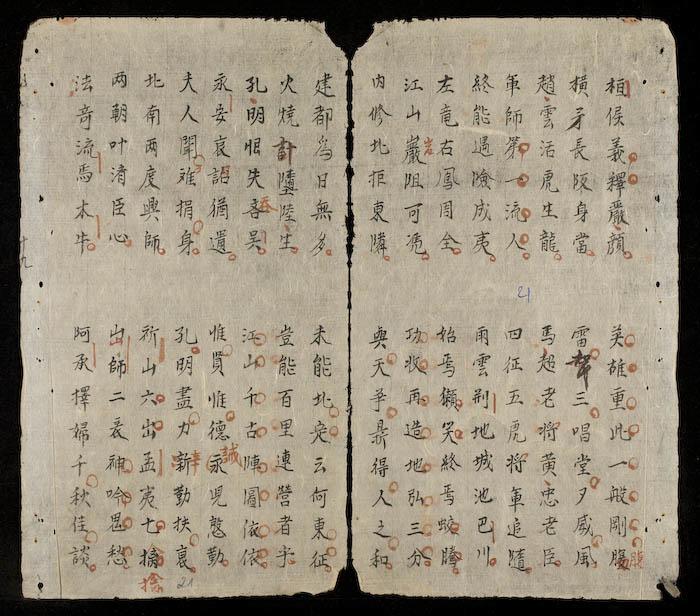 桓侯義釋嚴顏 英雄重此一般剛腸
橫矛長阪身當 雷聲三唱堂々威風
趙雲活虎生龍 馬超老將黃忠老臣
軍師第一流人 四征五虎將軍追隨
終能過險成夷 雨雲荆地城池巴川
左竜右鳳周全 始焉獺笑終焉蛟騰
江山巖阻可憑 功收再造地弘三分
岩
內修北拒東隣 與天爭鼎得人之和
21
建都為日無多 未能北定云何東征
火燒計墮陸生 豈能百里連營者乎
孔明恨失吞吳 江山千古陣圖依依
吞
永安哀詔猶遺 惟賢惟德永児慇勤
誠
夫人聞难捐身 孔明盡力新勤扶衰
北南两度興師 祈山六出孟夷七擒
擒
21
两朝叶濟臣心 出師二表神吟鬼愁
法奇流馬木牛 阿承擇婦千秋佳談
十九